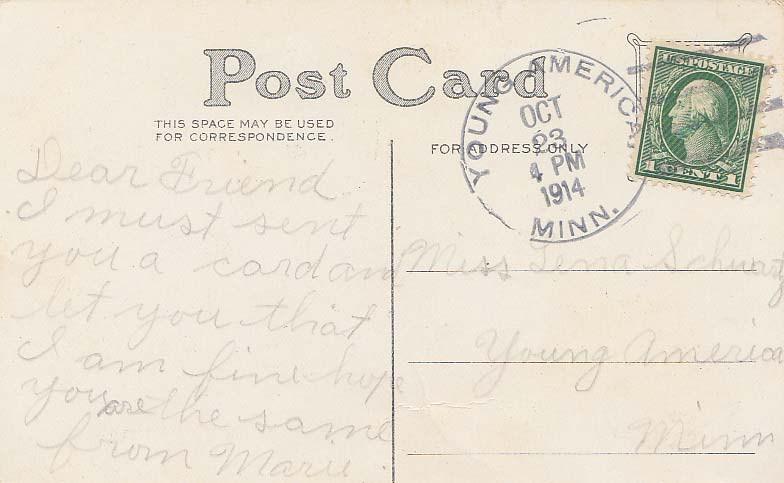 Post Card
THIS SPACE MAY BE USED
FOR CORRESPONDENCE.
FOR ADDRESS ONLY
YOUNG AMERICA,
OCT
23
4 PM
1914
MINN.
U.S. POSTAGE
1 CENT 1
Dear Friend
I must sent
you a card and
let you that
I am fine hope
you are the same
from Marie.
Miss Lena Schwatz
Young America
Minn